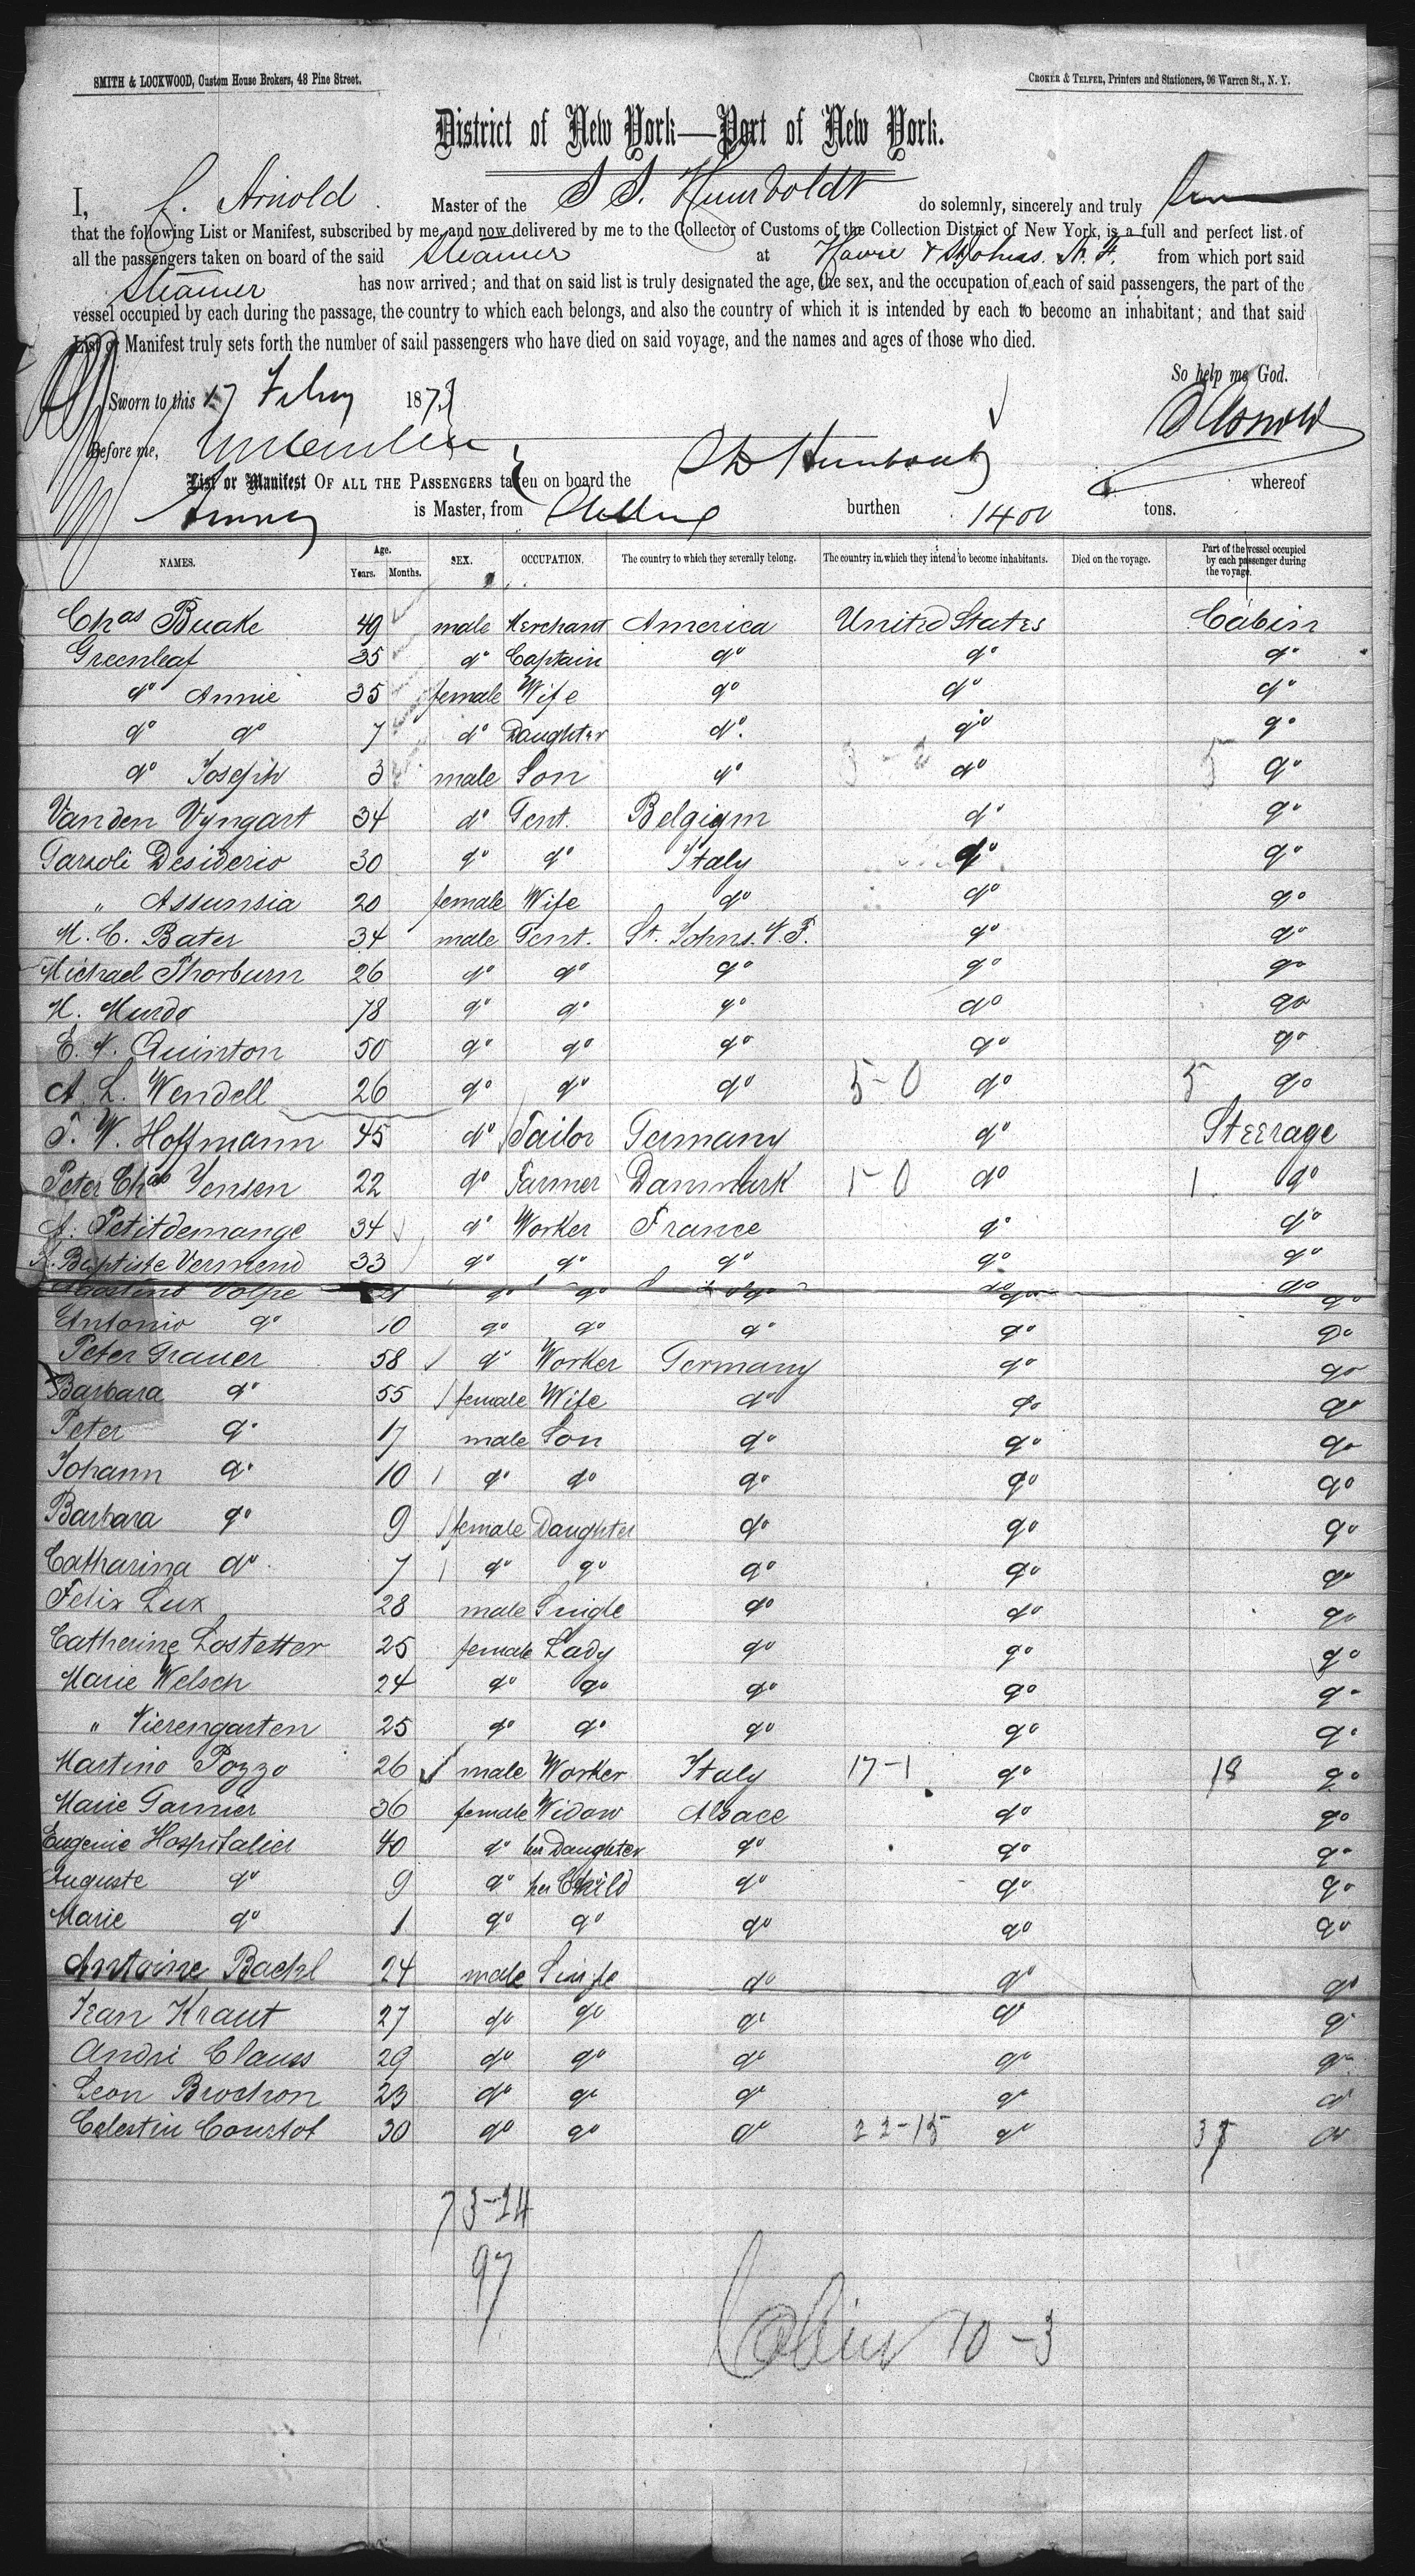 SMITH & LOCKWOOD, Custom House Brokers, 48 Pine Street. CROKER & TELFER, Printers and Stationers, 96 Warren St., N. Y.
District of New York—Port of New York.
I, C. Arnold Master of the S S. Humboldt do solemnly, sincerely and truly
that the following List or Manifest, subscribed by me, and now delivered by me to the Collector of Customs of the Collection District of New York, is a full and perfect list of
all the passengers taken on board of the said Steamer at Havre & St Johns. N. F. from which port said
Steamer has now arrived; and that on said list is truly designated the age, the sex, and the occupation of each of said passengers, the part of the
vessel occupied by each during the passage, the country to which each belongs, and also the country of which it is intended by each to become an inhabitant; and that said
List or Manifest truly sets forth the number of said passengers who have died on said voyage, and the names and ages of those who died.
So help me God.
Sworn to this 17 Feby 1873
C Arnold
Before me,
List or Manifest OF ALL THE PASSENGERS taken on board the SS Humboldt whereof
is Master, from burthen 1400 tons.
NAMES. Age. Years. Months. SEX. OCCUPATION. The country to which they severally belong. The country in which they intend to become inhabitants. Died on the voyage. Part of the vessel occupied by each passenger during the voyage.
Chas Buake 49 male Merchant America United States Cabin
Greenleaf 35 do Captain do do do
do Annie 35 female Wife do do do
do do 7 do Daughter do. do do
do Joseph 3 male Son do 3-2 do 5 do
Van den Vyngart 34 do Gent. Belgigm do do
Garsoli Desiderio 30 do do Italy do do
" Assunsia 20 female Wife do do do
M. C. Bater 34 male Gent. St. Johns. N. F. do do
Michael Thorburn 26 do do do do do
M. Murdo 78 do do do do do
E. N. Quinton 50 do do do do do
A. L. Wendell 26 do do do 5-0 do 5 do
F. W. Hoffmann 45 do Tailor Germany do Steerage
Peter Chas Jensen 22 do Farmer Danmark 1-0 do 1 do
A. Petitdemange 34 do Worker France do do
Baptiste Vermend 33 do do do do do
Volpe do do do do do
Antonio do 10 do do do do do
Peter Grauer 58 do Worker Germany do do
Barbara do 55 female Wife do do do
Peter do 17 male Son do do do
Johann do 10 do do do do do
Barbara do 9 female Daughter do do do
Catharina do 7 do do do do do
Felix Lux 28 male Single do do do
Catherine Lostetter 25 female Lady do do do
Marie Welsch 24 do do do do do
" Vierengarten 25 do do do do do
Martino Pozzo 26 male Worker Italy 17-1 do 18 do
Marie Garnier 36 female Widow Alsace do do
Eugenie Hospitalier 40 do her Daughter do do do
Auguste do 9 do her Child do do do
Marie do 1 do do do do do
Antoine Bachl 24 male Single do do do
Jean Kraut 27 do do do do do
André Clauss 29 do do do do do
Leon Brochon 23 do do do do do
Celestin Courtot 30 do do do 22-15 do 37 do
73-24
97
Cabin 10-3